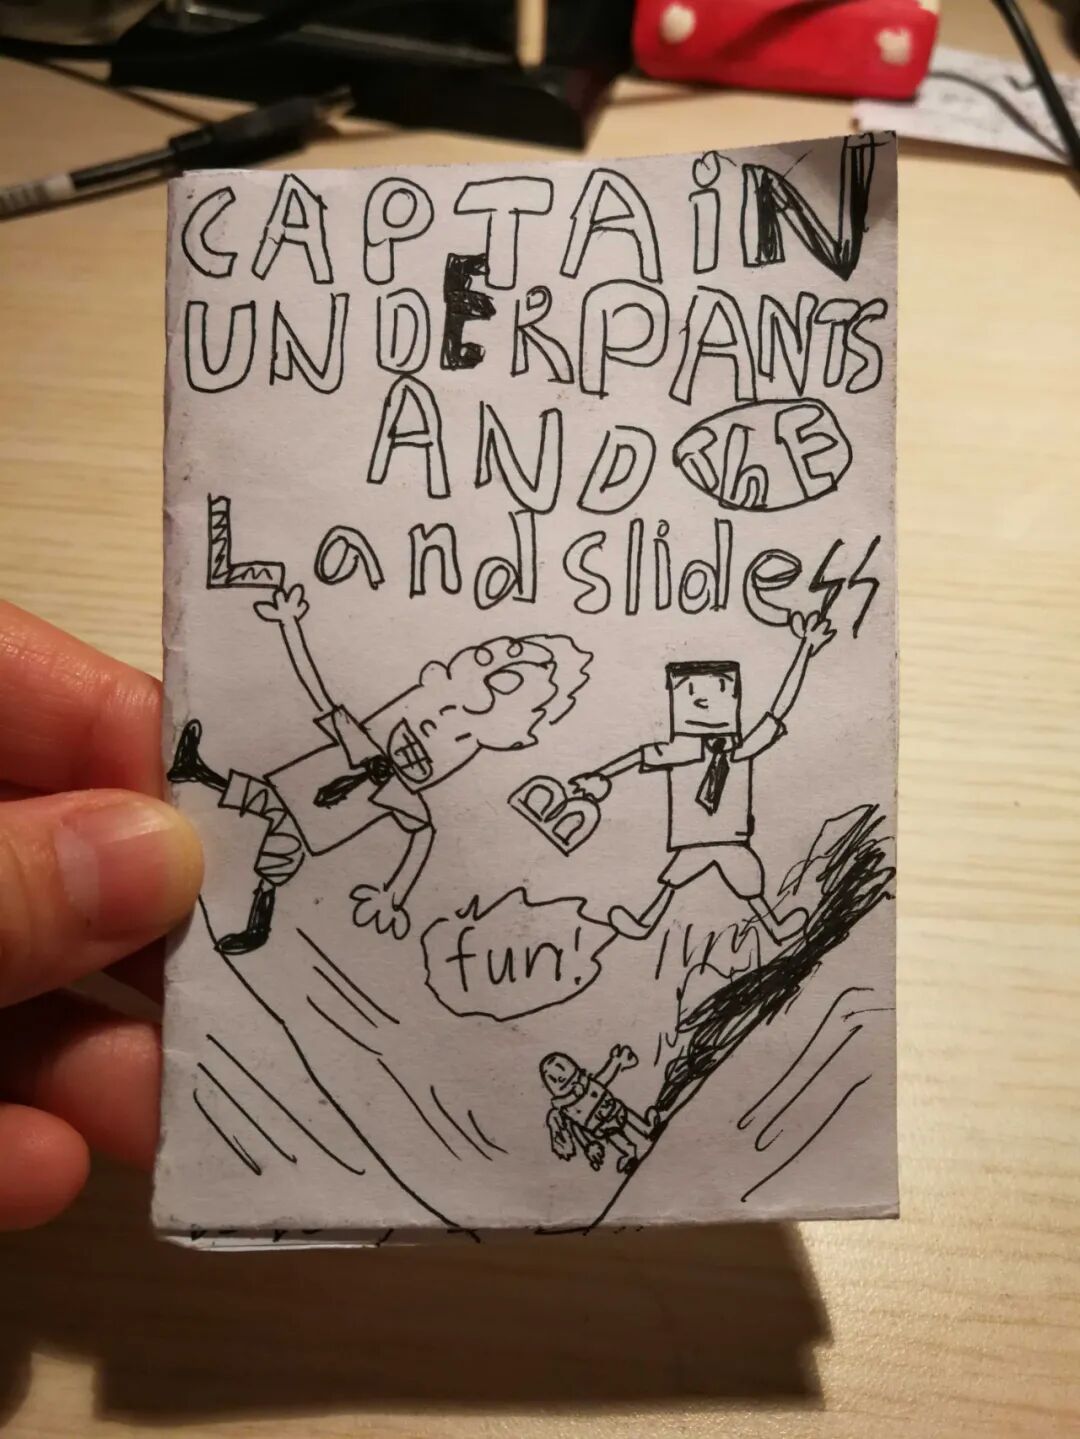 CAPTAiN
UNDERPANTS
AND ThE
Landslidess
B
fun!